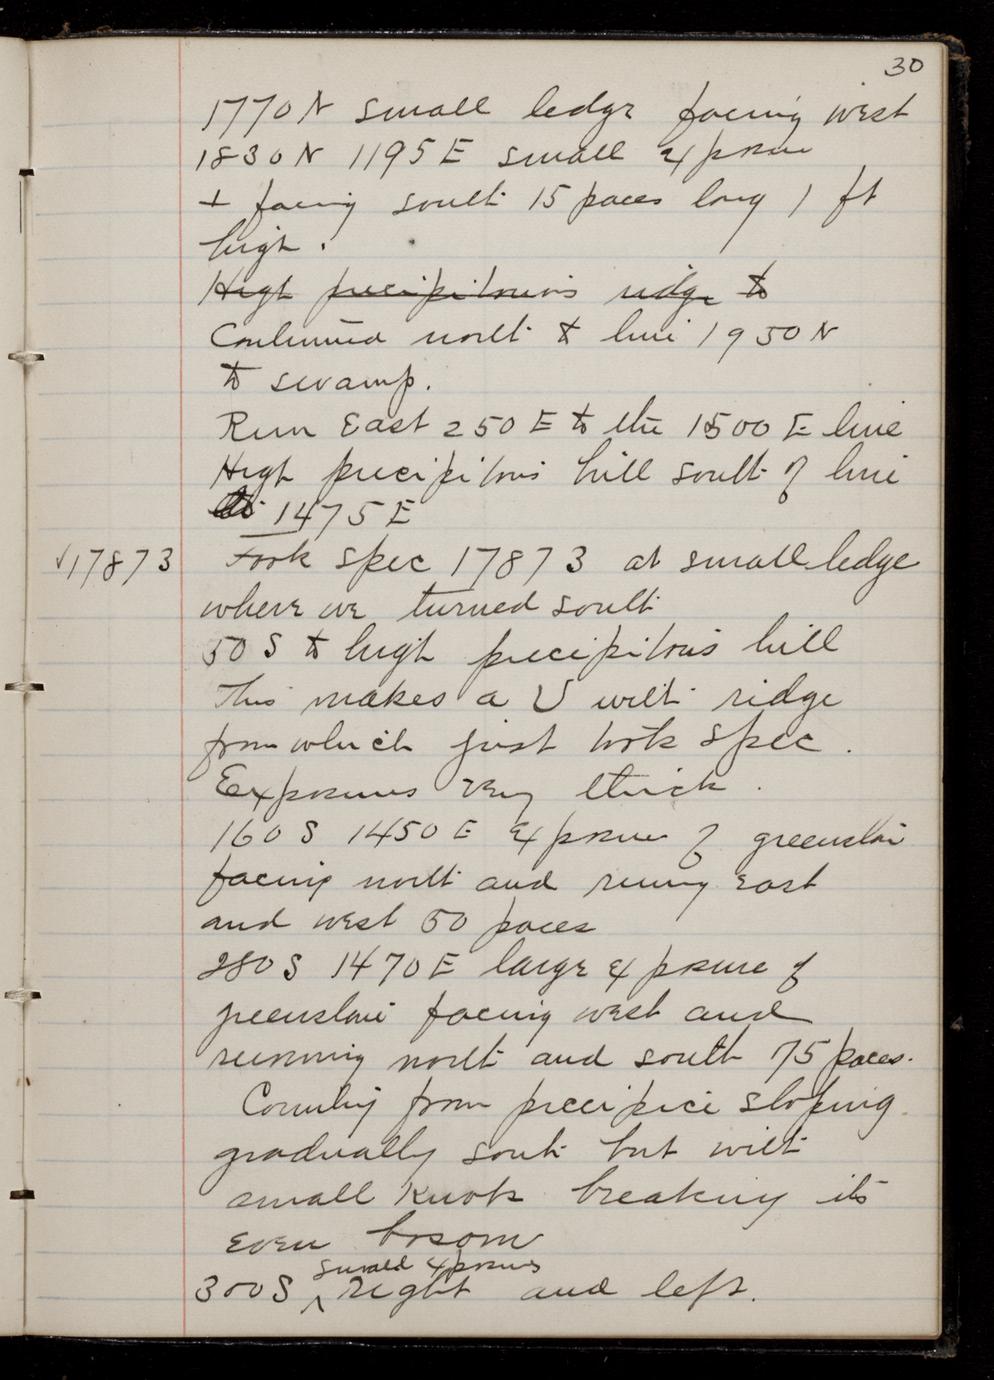 30
1770 N small ledge facing west
1830 N 1195 E small exposure
+ facing south 15 paces long 1 ft
high.
High precipitous ridge to
Continued north to line 1950 N
to swamp.
Run East 250 E to the 1500 E line
High precipitous hill south of line
at 1475 E
√17873 Took spec 17873 at small ledge
where we turned south
50 S to high precipitous hill
This makes a U with ridge
from which just took spec.
Exposures very thick.
160 S 1450 E exposure of greenstone
facing north and runing east
and west 50 paces
280 S 1470 E large exposure of
greenstone facing west and
running north and south 75 paces.
Country from precipice sloping
gradually south but with
small knobs breaking its
even bosom
small exposures
300 S ^ right and left.